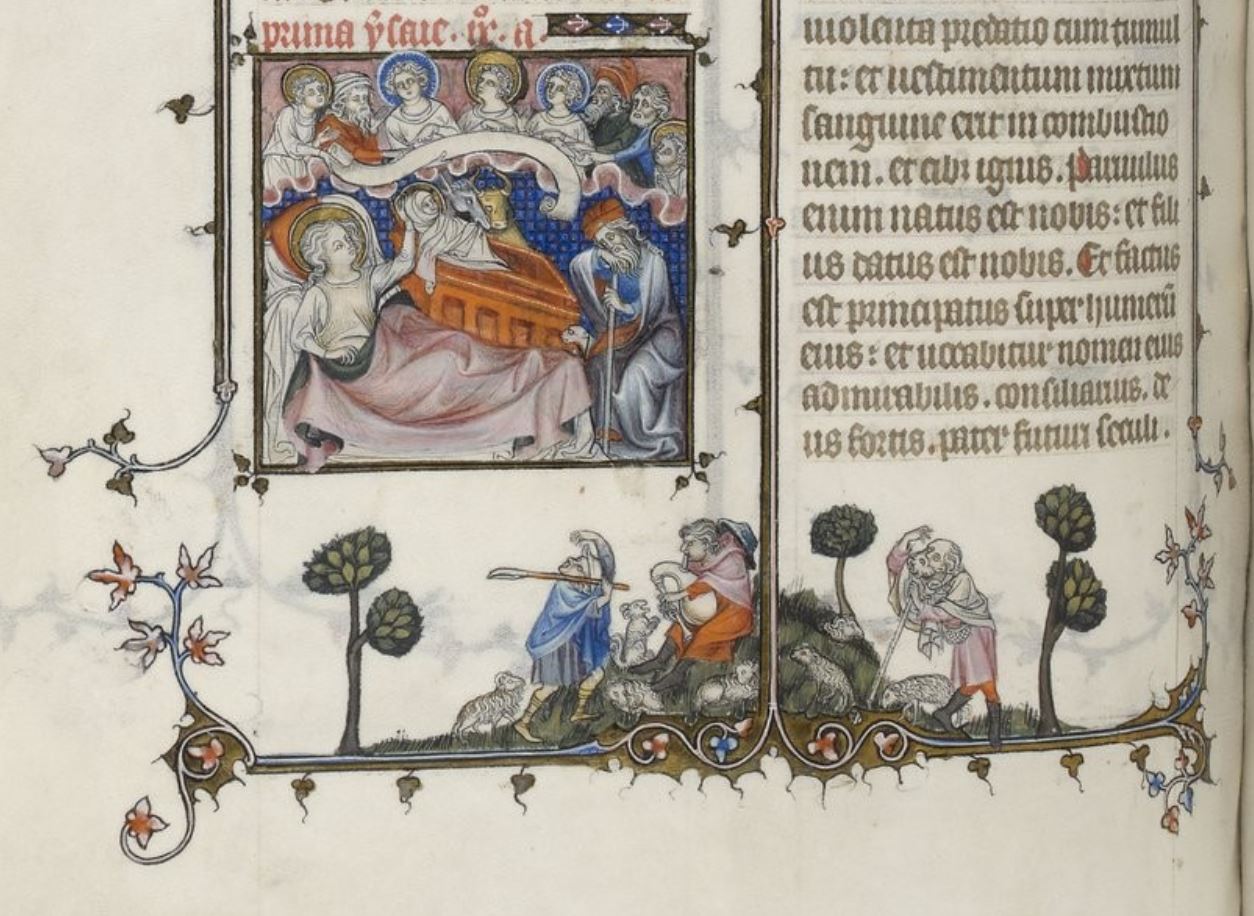 prima ysaie. ix. a.
uiolenta predatio cum tumul
tu: et uestimentum mixtum
sanguine erit in combustio
nem. et cibus ignis. Paruulus
enim natus est nobis: et fili
us datus est nobis. Et factus
est principatus super humerū
eius: et uocabitur nomen eius
admirabilis. consiliarius. de
us fortis. pater futuri seculi.